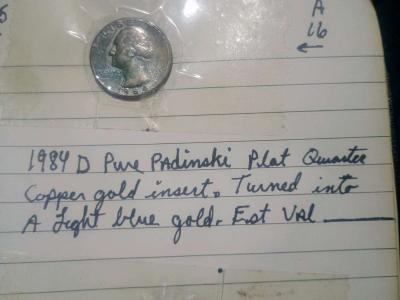 A
16
←
1984
1984 D Pure PAdinski Plat Quarter
Copper gold insert. Turned into
A Light blue gold. Est Val ______